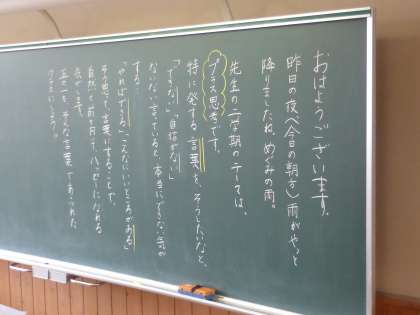 おはようございます。
昨日の夜(今日の朝方)雨がやっと
降りましたね。めぐみの雨。
先生の二学期のテーマは、
プラス思考です。
特に発する言葉を、そうしたいなと。
「できない」「自信がない」
ないない言っていると、本当にできない気が
する…
「やればできる」「こんないいところがある」
そう思って、言葉にすることで、
自然と前を向て、ハッピーになれる
気がします。
五年一組、そんな言葉であふれた
クラスにします。